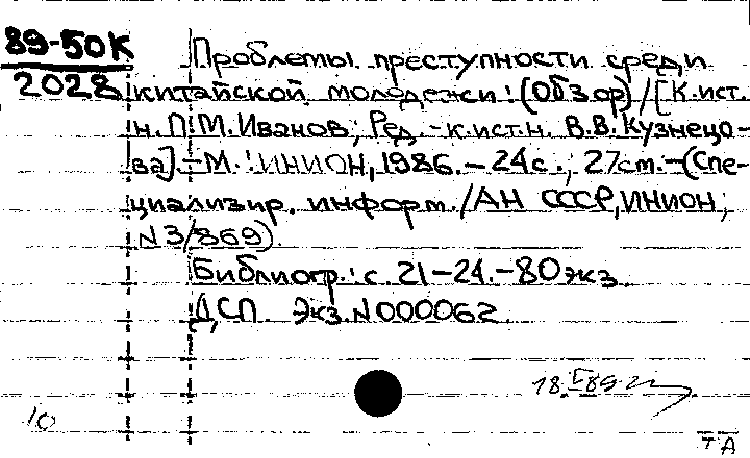 89-50К
2028
Проблемы преступности среди
китайской молодежи: (Обзор)/[К.ист.
н. П.М. Иванов; Ред. - к.ист.н. В.В. Кузнецо-
ва]. - М.: ИНИОН, 1986. - 24с.; 27см. - (Спе-
циализир. информ./АН СССР, ИНИОН;
N 3/869).
Библиогр.: с. 21-24. - 80экз.
ДСП. Экз. N 000062.
10
ТА